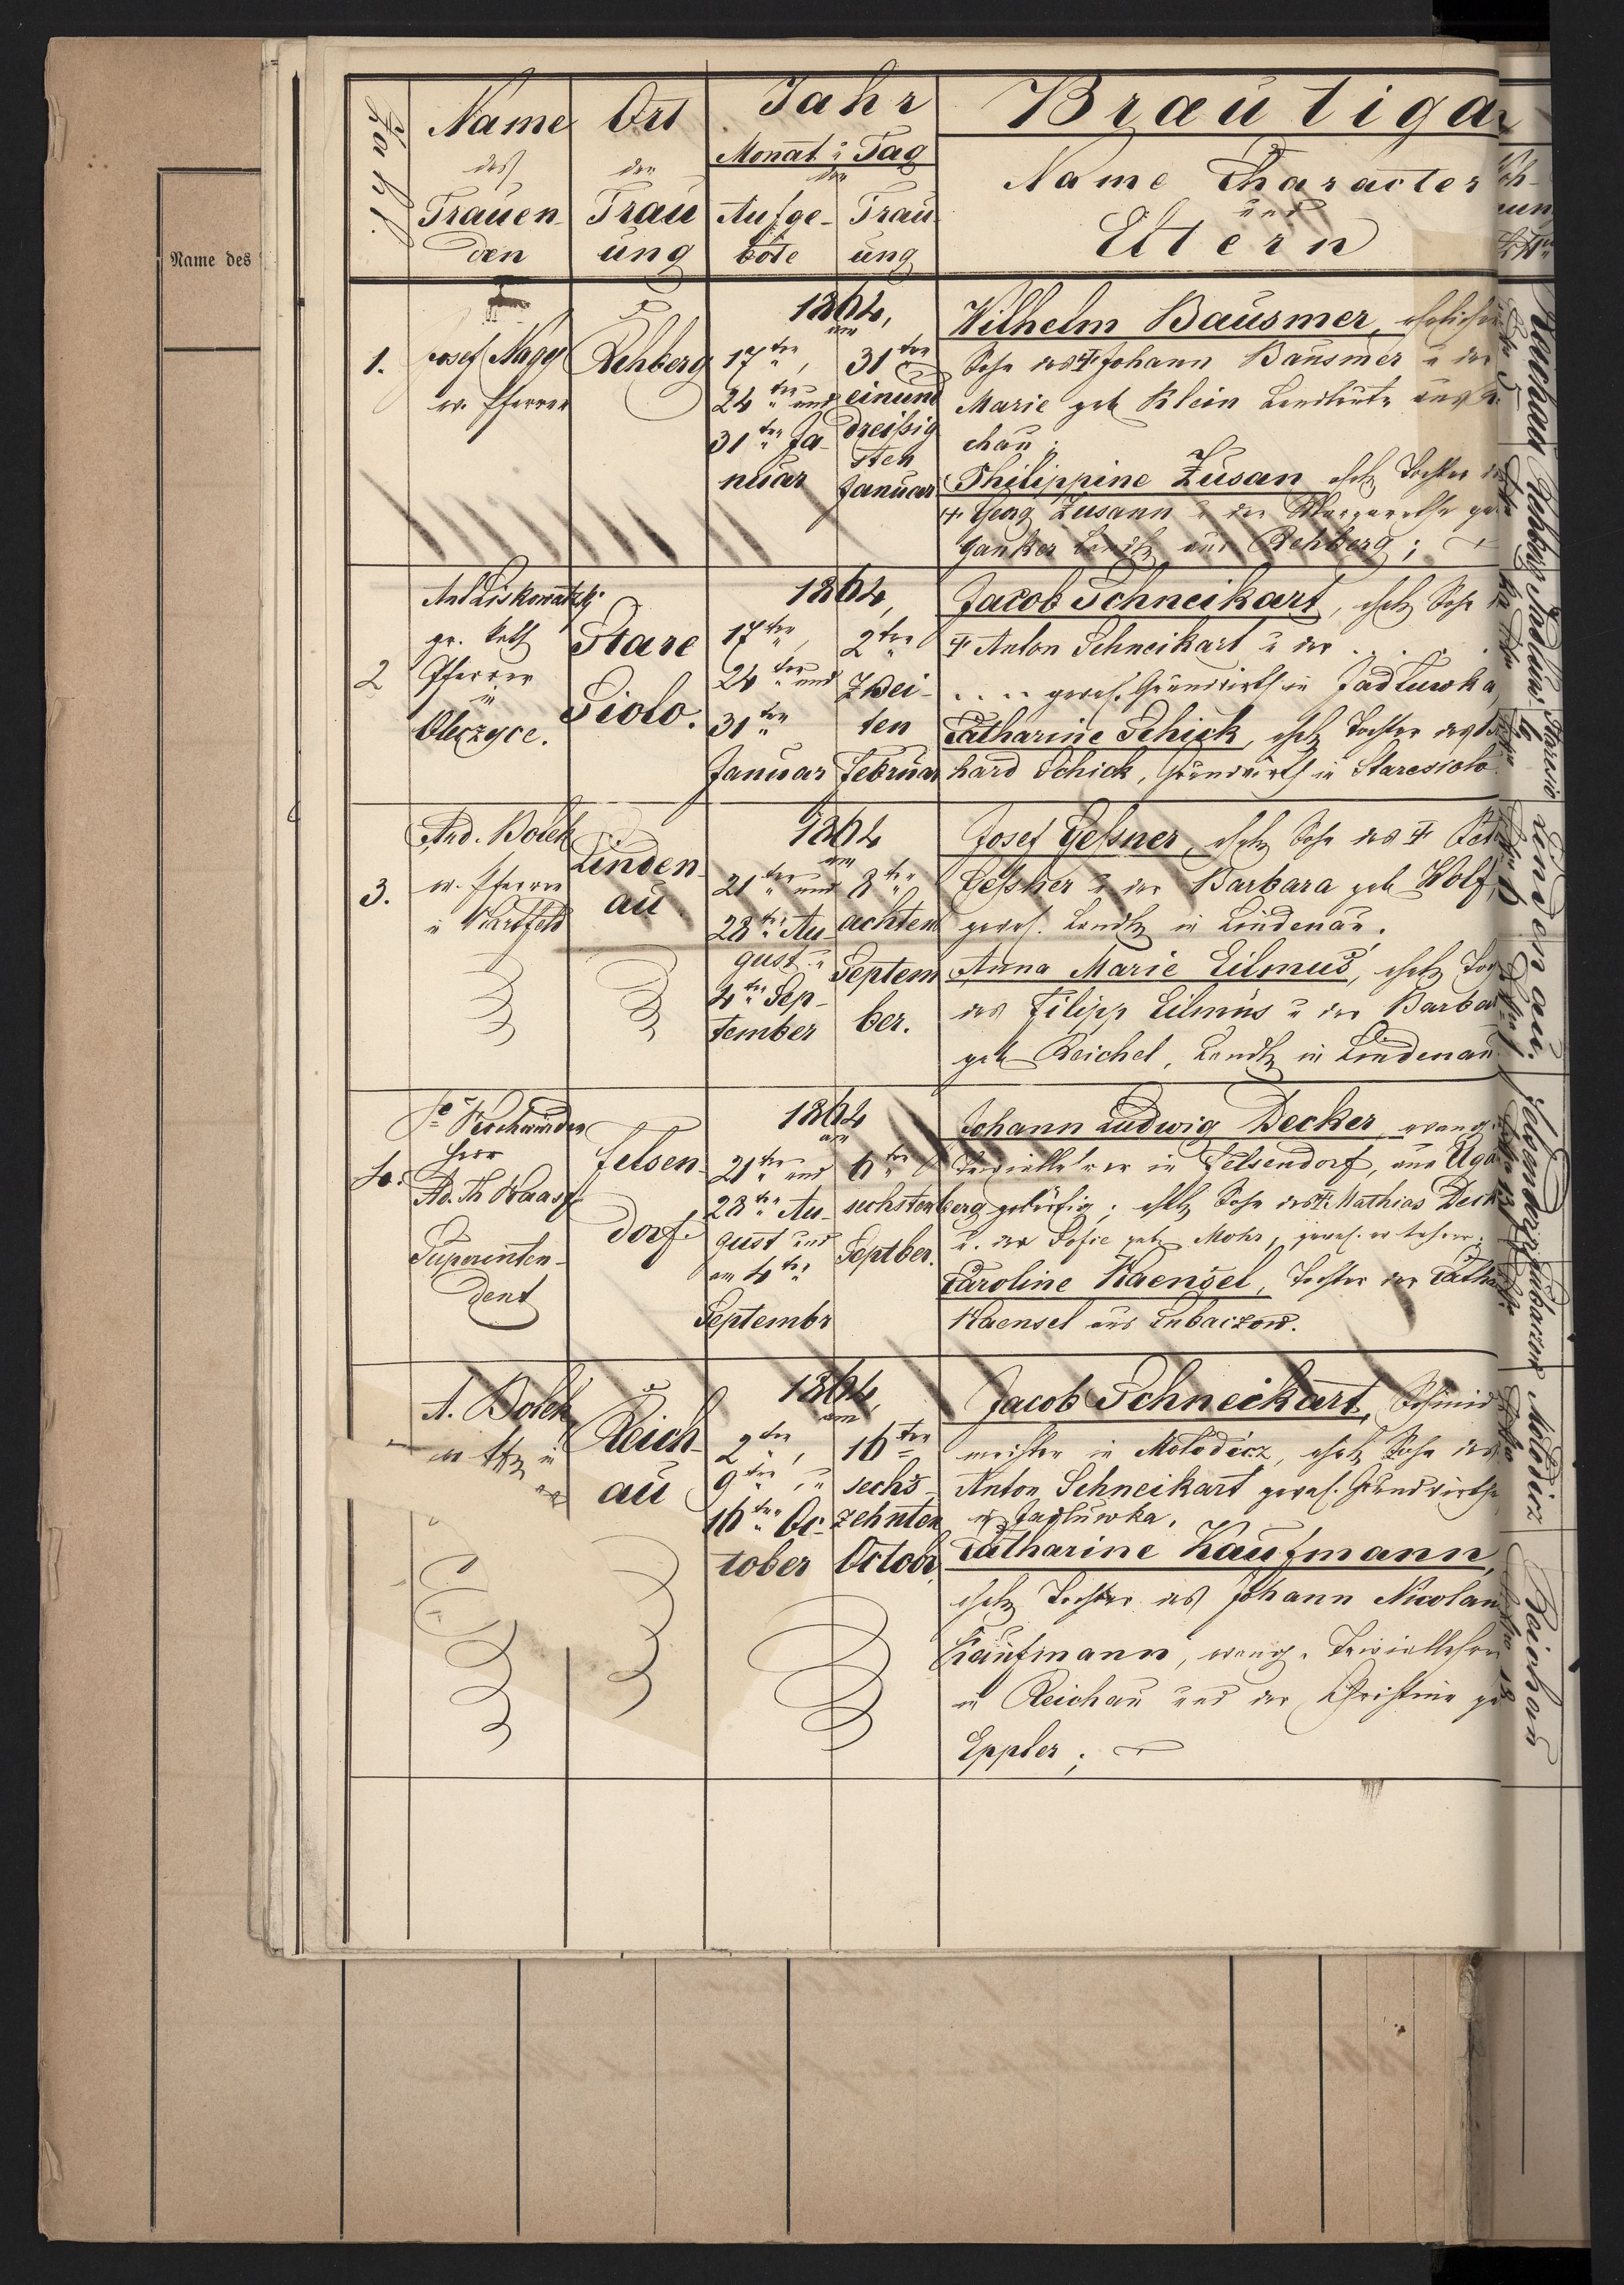 Name des
Zahl.
Name
des
Trauen-
den
Ort
der
Trau
ung
Jahr
Monat u Tag
der
Aufge-
bote
Trau
ung
Bräutiga
Name Character
und
Eltern
1.
Josef Nagy
ev. Pfarrer
Rehberg
1864,
am
17ten,
24ten und
31ten Ja-
nuar
31ten
einund
dreißig
sten
Januar
Wilhelm Bausmer, ehelicher
Sohn des † Johann Bausmer u der
Marie geb Klein Landleute aus R.
chau;
Philippine Zusan ehel Tochter d
† Georg Zusann u der Margarethe ge
Ganker Landl aus Rehberg;
2
Ant Liskowatzki
gr. kath
Pfarrer
in
Oleszyce.
Stare
Siolo.
1864,
17ten,
24ten und
31ten
Januar
2ten
Zwei-
ten
Februar
Jacob Schneikart, ehel Sohn
† Anton Schneikart u der . . .
. . . . gewes. Grundwirth in Jadluwka
Catharine Schick, ehel Tochter des
hard Schick, Grundwirth in Staresiolo
3.
And. Bolek
ev. Pfarrer
in Bartfeld
Linden-
au
1864
am
21ten und
28ten Au-
gust u
4ten Sep-
tember
8ten
achten
Septem
ber.
Josef Geßner, ehel Sohn des †
Geßner u der Barbara geb Wolf,
gewes. Landl in Lindenau.
Anna Marie Eilmus, ehel Toch
des Filipp Eilmus u der Barbar
geb Reichel, Landl in Lindenau
4.
Hochwürden
Herr
Ad. Th Haase
Superinten-
dent
Felsen-
dorf.
1864
am
21ten und
28ten Au-
gust und
am 4ten
Septembr
6ten
sechsten
Septber.
Johann Ludwig Decker, evang.
Triviallehrer in Felsendorf, aus Uga
berg gebürtig; ehel Sohn des † Mathias Deck
u. der Sofie geb Mohr, gewes. ev Lehrer;
Caroline Haensel, Tochter der Catha
Haensel aus Lubaczow.
A. Bolek
ev Pf in
Reich-
au
1864,
am
2ten,
9ten, u
16ten Oc-
tober
16ten
sechs-
zehnten
Octobr.
Jacob Schneikart, Schmid
meister in Molodicz, ehel Sohn des
Anton Schneikart gewes. Grundwirths
in Jadluwka.
Catharine Kaufmann,
ehel Tochter des Johann Nicolau
Kaufmann, evang. Triviallehrer
in Reichau und der Christine ge
Eppler;
Reichau Rehberg
Staresio
Lindenau.
Felsendorf Lubaczow
Molodicz
Reichau